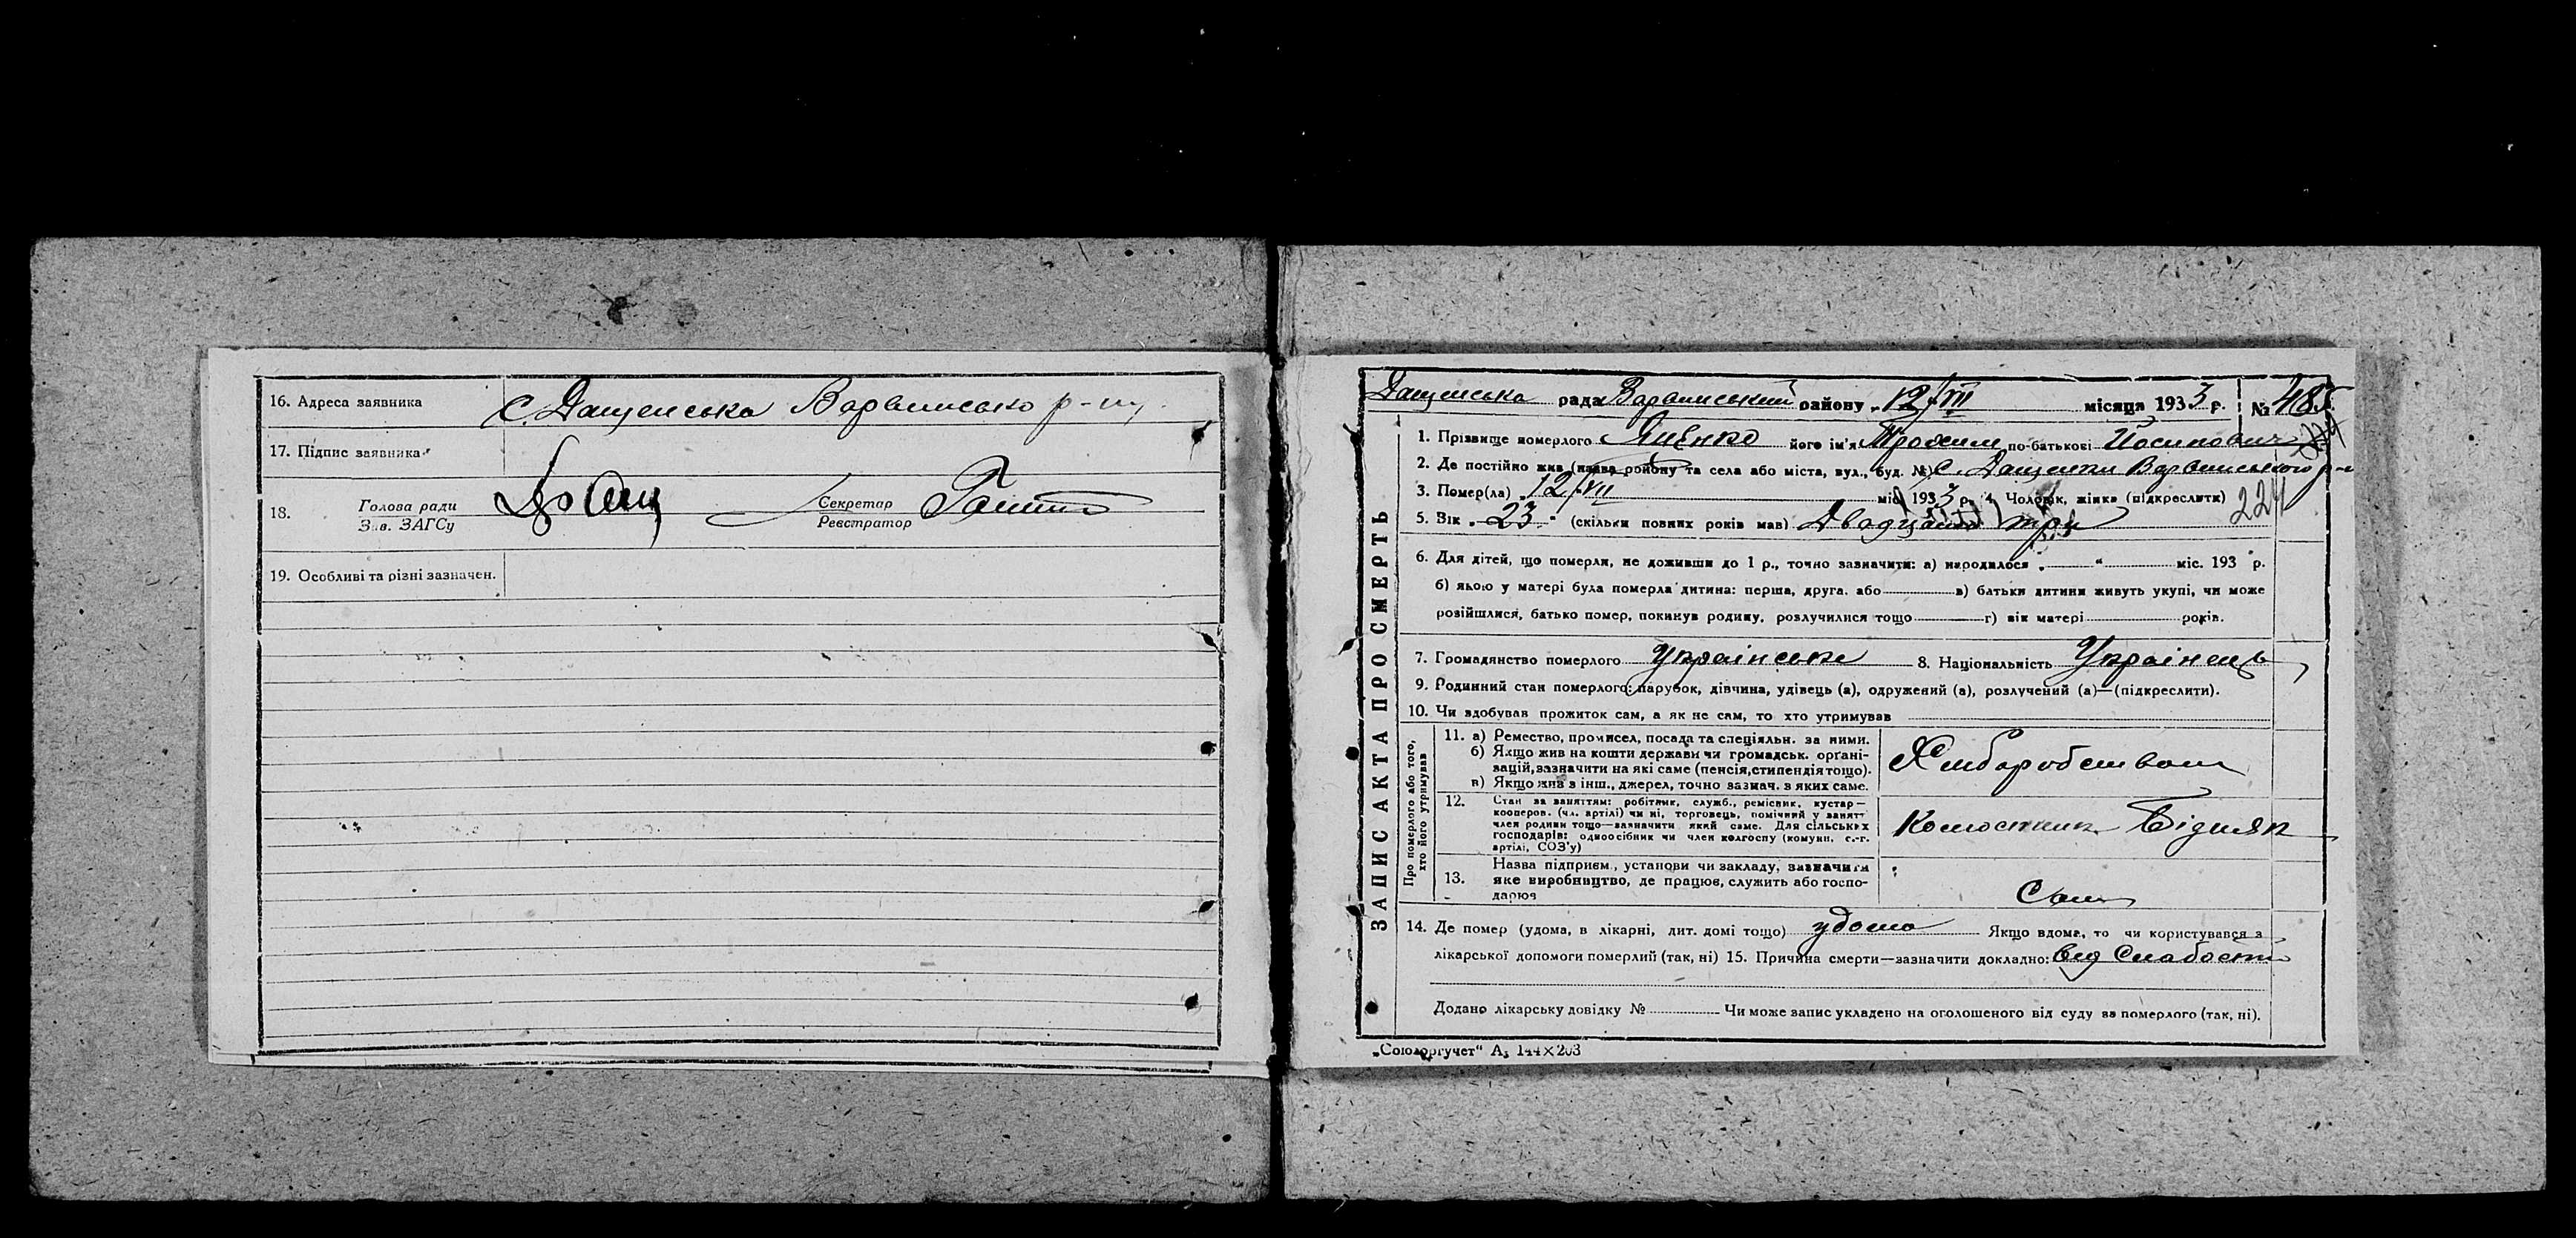 16. Адреса заявника с. Дащенська Варвинсько р-ну.
17. Підпис заявника
18. Голова ради
Зав. ЗАГСу
Секретар
Реєстратор
19. Особливі та різні зазначен.
ЗАПИС АКТА ПРО СМЕРТЬ
Дащенська рада Варвинський району „12/VII місяця 1933 р. № 485
1. Прізвище померлого Яценко його ім'я Трохим по-батькові Йосипович
2. Де постійно жив (назва району та села або міста, вул., буд. №) с. Дащенки Варвинського р-н
3. Помер(ла) „12/VII міс. 1933 р. 4. Чоловік, жінка (підкреслити) 224
5. Вік „23" (скільки повних років мав) Двадцать три
6. Для дітей, що померли, не доживши до 1 р., точно зазначити: а) народилося „ " міс. 193 р.
б) якою у матері була померла дитина: перша, друга. або в) батьки дитини живуть укупі, чи може
розійшлися, батько помер, покинув родину, розлучилися тощо г) вік матері років.
7. Громадянство померлого Українське 8. Національність Українець
9. Родинний стан померлого: парубок, дівчина, удівець (а), одружений (а), розлучений (а)—(підкреслити).
10. Чи здобував прожиток сам, а як не сам, то хто утримував
Про померлого або того, хто його утримував
11. а) Ремество, промисел, посада та спеціяльн. за ними.
б) Якщо жив на кошти держави чи громадськ. органі-
зацій, зазначити на які саме (пенсія, стипендія тощо).
в) Якщо жив з інш., джерел, точно зазнач. з яких саме.
Хліборобством
12. Стан за заняттям: робітник, служб., ремісник, кустар—
кооперов. (чл. артілі) чи ні, торговець, помічний у занятт
член родини тощо—зазначити який саме. Для сільських
господарів: одноосібник чи член колгоспу (комуни, с.-г.
артілі, СОЗ'у)
Колгоспник Бідняк
13. Назва підприєм., установи чи закладу, зазначити
яке виробництво, де працює, служить або госпо-
дарює
Сам
14. Де помер (удома, в лікарні, дит. домі тощо) удома Якщо вдома, то чи користувався з
лікарської допомоги померлий (так, ні) 15. Причина смерти—зазначити докладно: від Слабости
Додано лікарську довідку № Чи може запис укладено на оголошеного від суду за померлого (так, ні).
„Союзоргучет" А₅ 144×203